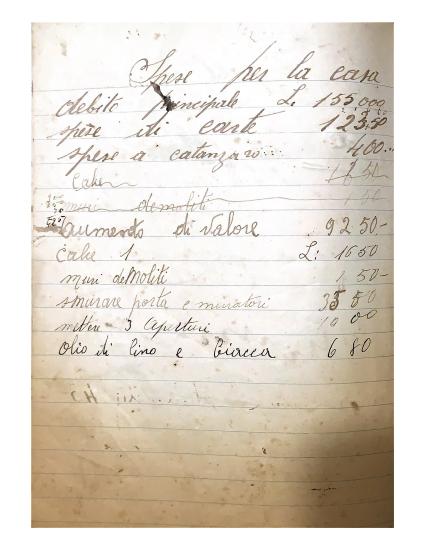 Spese per la casa
debito principale L. 155,000
spese di carte 12350
spese a catanzaro 400
Cake
demoliti 150
aumento di valore 9250-
Calce 1 L: 1650
muri deMoliti 150-
smurare porta e muratori 3550
mettere 3 aperture 1000
olio di lino e biacca 680